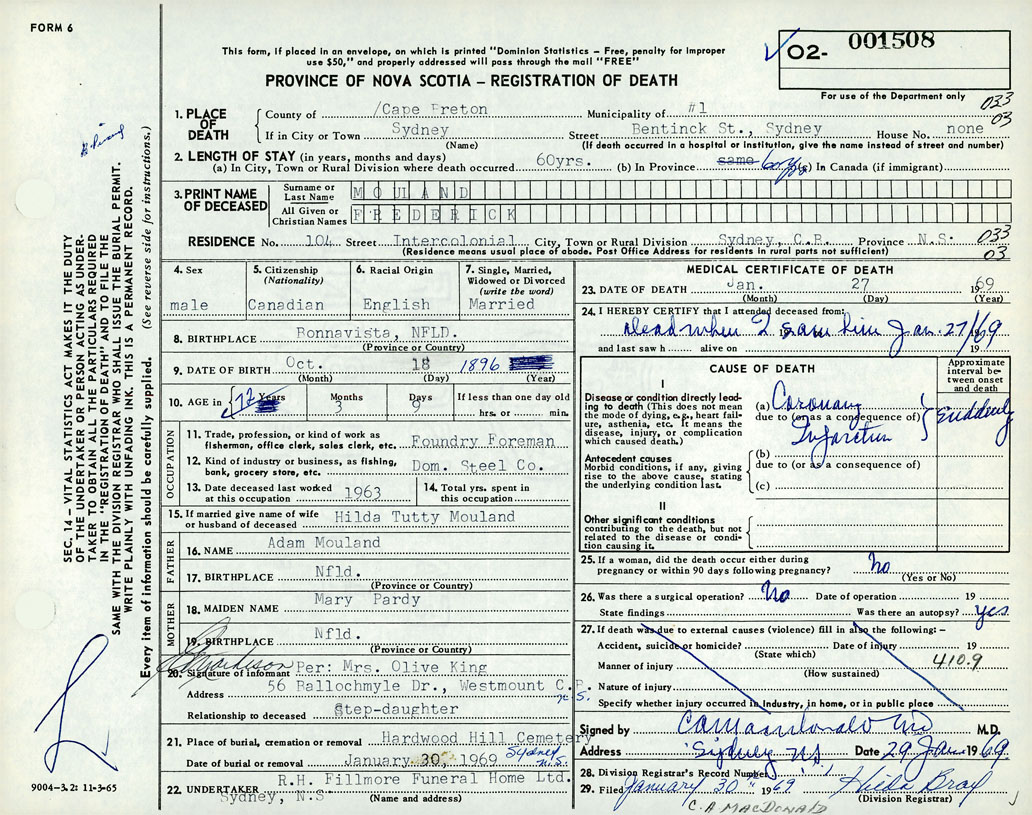 FORM 6
This form, if placed in an envelope, on which is printed "Dominion Statistics – Free, penalty for improper
use $50," and properly addressed will pass through the mail "FREE"
PROVINCE OF NOVA SCOTIA – REGISTRATION OF DEATH
O2- 001508
For use of the Department only
033
03
1. PLACE OF DEATH
County of /Cape Breton Municipality of #1
If in City or Town Sydney Street Bentinck St., Sydney House No. none
(Name) (If death occurred in a hospital or institution, give the name instead of street and number)
2. LENGTH OF STAY (in years, months and days)
(a) In City, Town or Rural Division where death occurred 60yrs. (b) In Province same 60yrs (c) In Canada (if immigrant)
3. PRINT NAME OF DECEASED
Surname or Last Name MOULAND
All Given or Christian Names FREDERICK
RESIDENCE No. 104 Street Intercolonial City, Town or Rural Division Sydney, C.B. Province N.S. 033
(Residence means usual place of abode. Post Office Address for residents in rural parts not sufficient) 03
4. Sex male
5. Citizenship (Nationality) Canadian
6. Racial Origin English
7. Single, Married, Widowed or Divorced (write the word) Married
8. BIRTHPLACE Bonnavista, NFLD.
(Province or Country)
9. DATE OF BIRTH Oct. 18 1896
(Month) (Day) (Year)
10. AGE in 72 Years Months 3 Days 9 If less than one day old
hrs. or min.
OCCUPATION
11. Trade, profession, or kind of work as fisherman, office clerk, salesman, etc. Foundry Foreman
12. Kind of industry or business, as fishing, bank, grocery store, etc. Dom. Steel Co.
13. Date deceased last worked at this occupation 1963
14. Total yrs. spent in this occupation
15. If married give name of wife or husband of deceased Hilda Tutty Mouland
FATHER
16. NAME Adam Mouland
17. BIRTHPLACE Nfld.
(Province or Country)
MOTHER
18. MAIDEN NAME Mary Pardy
19. BIRTHPLACE Nfld.
(Province or Country)
20. Signature of informant Per: Mrs. Olive King
Address 56 Ballochmyle Dr., Westmount C.B.
N.S.
Relationship to deceased Step-daughter
21. Place of burial, cremation or removal Hardwood Hill Cemetery
Date of burial or removal January 30, 1969 Sydney N.S.
22. UNDERTAKER R.H. Fillmore Funeral Home Ltd.
Sydney, N.S (Name and address)
MEDICAL CERTIFICATE OF DEATH
23. DATE OF DEATH Jan. 27 1969
(Month) (Day) (Year)
24. I HEREBY CERTIFY that I attended deceased from:
Dead when I saw him Jan. 27/69
and last saw h alive on 19
CAUSE OF DEATH
Approximate interval between onset and death
I
Disease or condition directly leading to death (This does not mean the mode of dying, e.g., heart failure, asthenia, etc. It means the disease, injury, or complication which caused death.)
(a) Coronary
due to (or as a consequence of)
Infarction
Suddenly
Antecedent causes
Morbid conditions, if any, giving rise to the above cause, stating the underlying condition last.
(b)
due to (or as a consequence of)
(c)
II
Other significant conditions
contributing to the death, but not related to the disease or condition causing it.
25. If a woman, did the death occur either during
pregnancy or within 90 days following pregnancy? No
(Yes or No)
26. Was there a surgical operation? No Date of operation 19
State findings Was there an autopsy? yes
27. If death was due to external causes (violence) fill in also the following: –
Accident, suicide or homicide? Date of injury 19
(State which)
Manner of injury 410.9
(How sustained)
Nature of injury
Specify whether injury occurred in industry, in home, or in public place
Signed by M.D.
Address Sydney NS Date 29 Jan. 1969
28. Division Registrar's Record Number
29. Filed January 30th 1969
(Division Registrar)
C.A MACDONALD
SEC. 14 – VITAL STATISTICS ACT MAKES IT THE DUTY
OF THE UNDERTAKER OR PERSON ACTING AS UNDER-
TAKER TO OBTAIN ALL THE PARTICULARS REQUIRED
IN THE "REGISTRATION OF DEATH" AND TO FILE THE
SAME WITH THE DIVISION REGISTRAR WHO SHALL ISSUE THE BURIAL PERMIT.
WRITE PLAINLY WITH UNFADING INK. THIS IS A PERMANENT RECORD.
Every item of information should be carefully supplied. (See reverse side for instructions.)
9004-3.2: 11-3-65